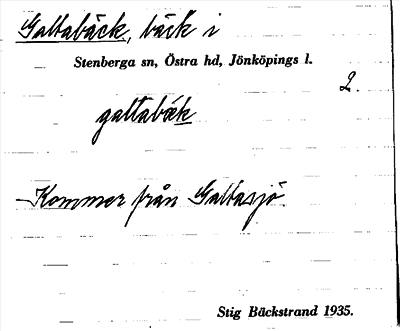 Galtabäck, bäck i
Stenberga sn, Östra hd, Jönköpings l.
2.
galtabäk
Kommer från Galtasjö.
Stig Bäckstrand 1935.